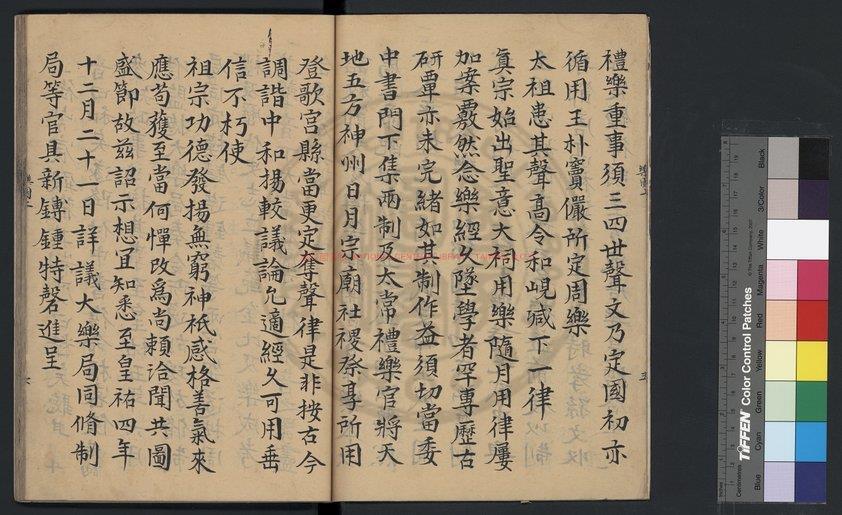 禮樂重事須三四世聲文乃定國初亦
循用王朴竇儼所定周樂
太祖患其聲高令和峴減下一律
真宗始出聖意大祠用樂隨月用律屢
加案覈然念樂經久墜學者罕專歷古
研覃亦未完緒如其制作益須切當委
中書門下集兩制及太常禮樂官將天
地五方神州日月宗廟社稷祭享所用
登歌宮縣當更定奪聲律是非按古今
調諧中和揚較議論允適經久可用垂
信不朽使
祖宗功德發揚無窮神祇感格善氣來
應苟獲至當何憚改爲尚賴洽聞共圖
盛節故兹詔示想宜知悉至皇祐四年
十二月二十一日詳議大樂局同脩制
局等官具新鎛鍾特磬進呈
TIFFEN Color Control Patches
© The Tiffen Company, 2007
Blue
Cyan
Green
Yellow
Red
Magenta
White
3/Color
Black
Inches
Centimetres